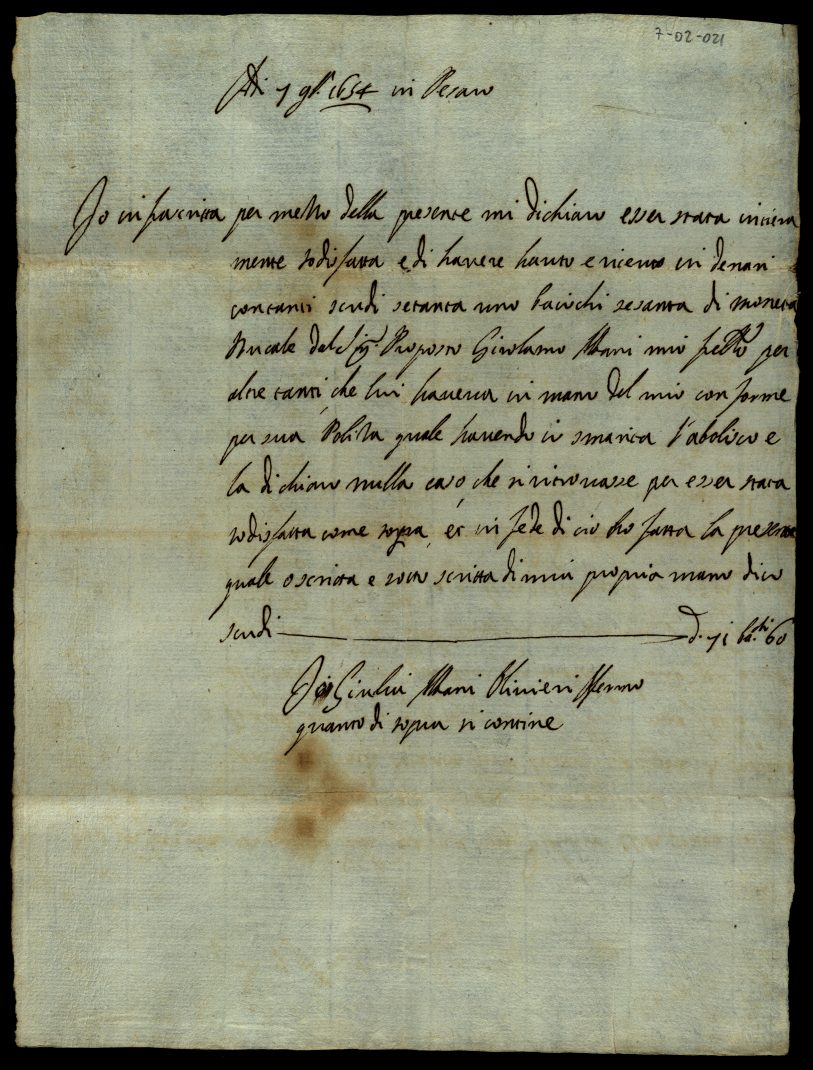 7-02-021
Adi 7 1654 in Pesaro
Io infrascritta per mezzo della presente mi dichiaro esser stata intiera
mente sodisfatta e di havere hauto e riceuto in denari
contanti scudi setanta uno baiochi sesanta di moneta
Ducale dal Sig.r Proposto Girolamo mio per
altre tanti che lui haveva in mano del mio conforme
per sua Polizza quale havendo io smarita l'abolisco e
la dichiaro nulla caso che si ritrovasse per esser stata
sodisfatta come sopra, et in fede di cio ho fatta la presente
quale o scritta e sotto scritta di mia propria mano dico
scudi d. 71 ba.chi 60
Io Giulia Olivieri Affermo
quanto di sopra si contine